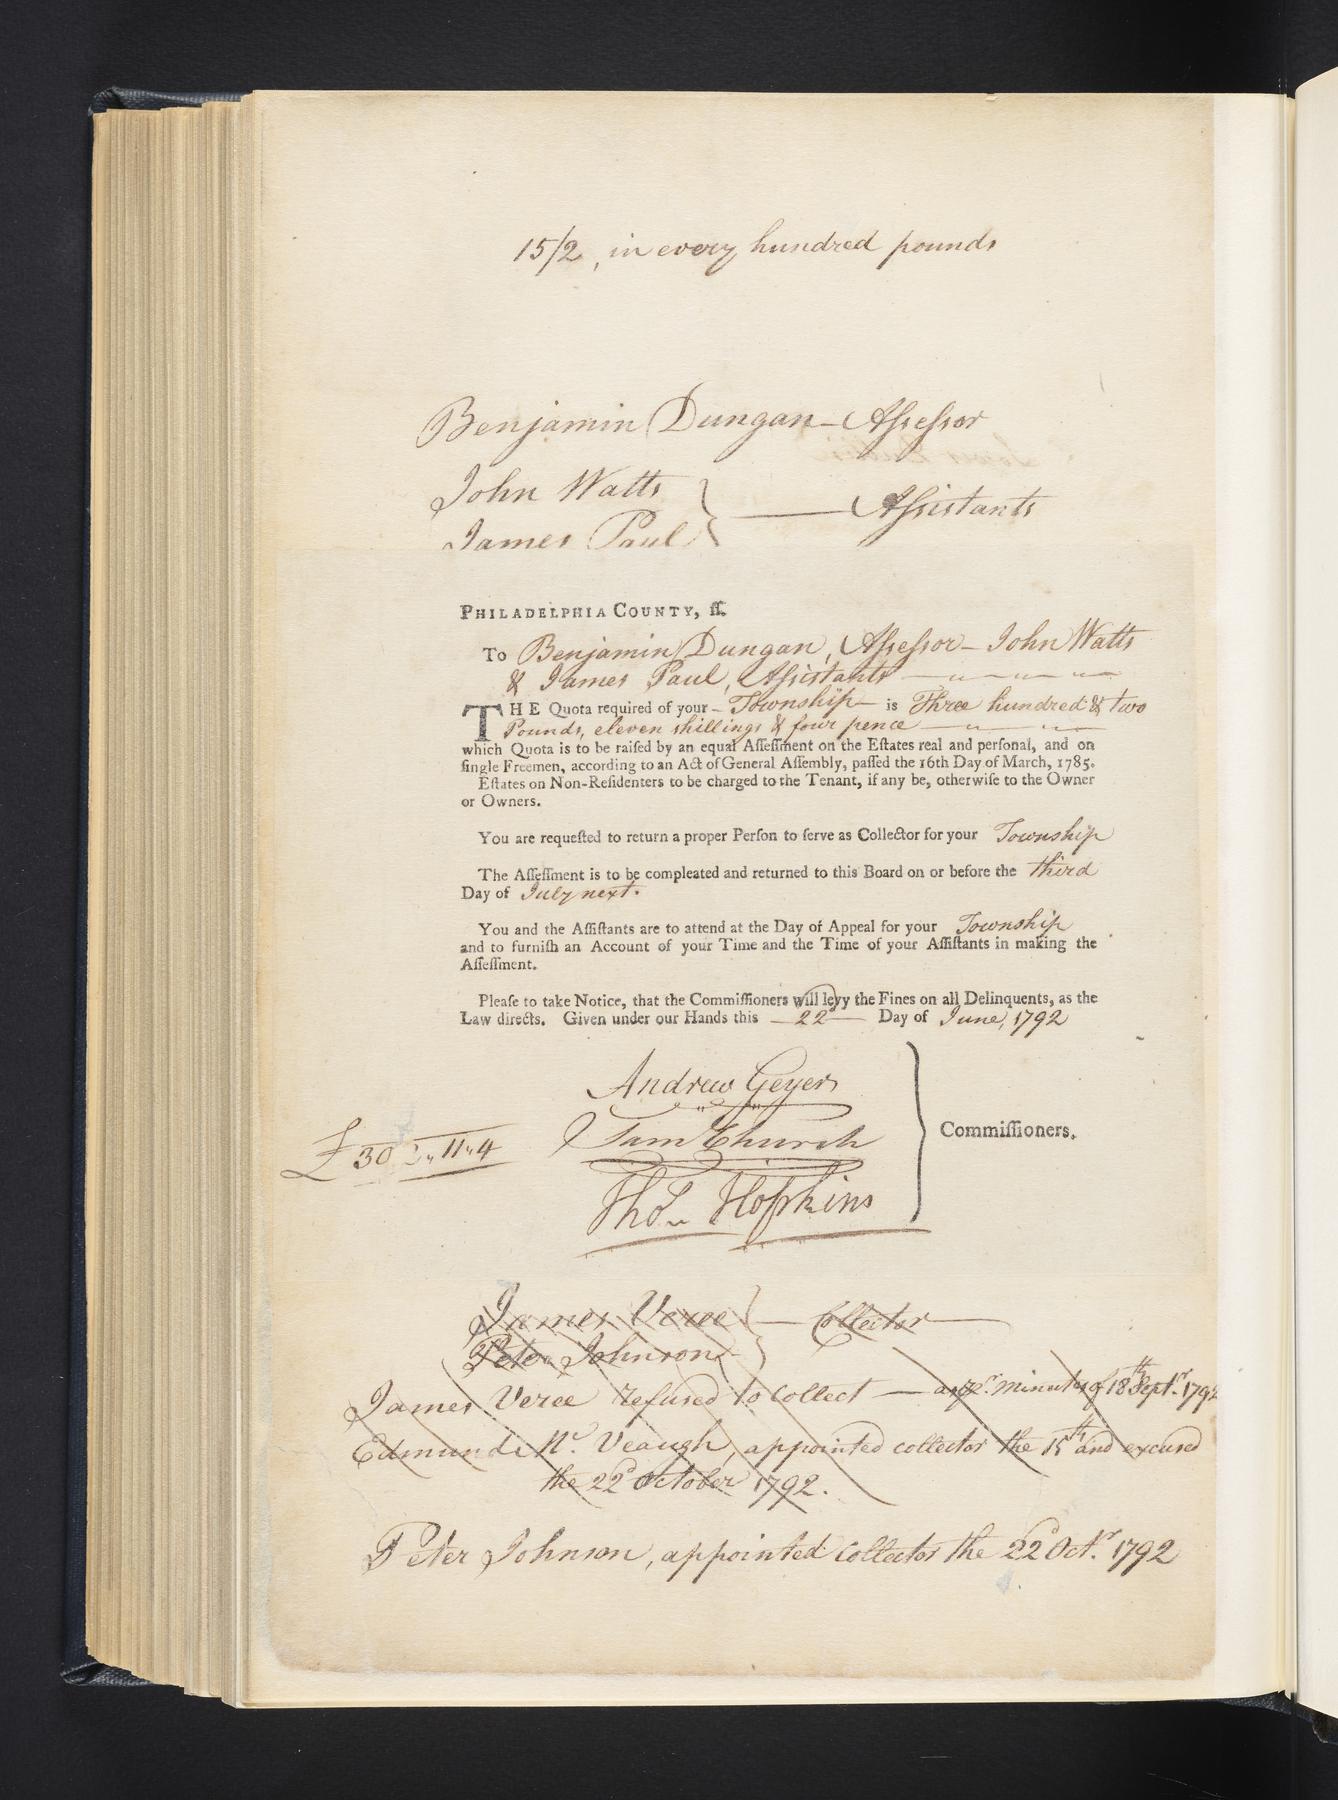 15/2, in every hundred pounds
Benjamin Dungan – Assessor
John Watts
James Paul } —— Assistants
PHILADELPHIA COUNTY, ſſ.
To Benjamin Dungan, Assessor – John Watts
& James Paul, Assistants
THE Quota required of your – Township – is Three hundred & two
Pounds, eleven shillings & four pence
which Quota is to be raiſed by an equal Aſſeſſment on the Eſtates real and perſonal, and on
ſingle Freemen, according to an Act of General Aſſembly, paſſed the 16th Day of March, 1785.
Eſtates on Non-Reſidenters to be charged to the Tenant, if any be, otherwiſe to the Owner
or Owners.
You are requeſted to return a proper Perſon to ſerve as Collector for your Township
The Aſſeſſment is to be compleated and returned to this Board on or before the third
Day of July next.
You and the Aſſiſtants are to attend at the Day of Appeal for your Township
and to furniſh an Account of your Time and the Time of your Aſſiſtants in making the
Aſſeſſment.
Pleaſe to take Notice, that the Commiſſioners will levy the Fines on all Delinquents, as the
Law directs. Given under our Hands this – 22d – Day of June, 1792
Andrew Geyer
£302„11„4 Sam Church } Commiſſioners.
Thos. Hopkins
James Veree } — Collector —
Peter Johnson
James Veree refused to Collect — as pr. minutes of 18th Sept. 1792
Edmund Mc. Veaugh, appointed collector the 15th and excused
the 22d October 1792.
Peter Johnson, appointed Collector the 22d Octr. 1792